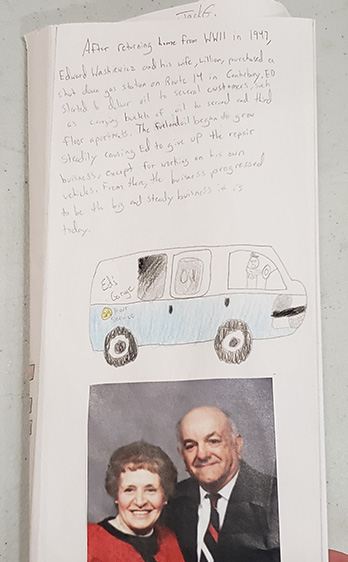 Jack F.
After returning home from WWII in 1947,
Edward Waskiewicz and his wife, Lillian, purchased a
shut down gas station on Route 14 in Canterbury. ED
started to deliver oil to several customers, such
as carrying buckets of oil to second and third
floor apartments. The fuel and oil began to grow
steadily causing Ed to give up the repair
business, except for working on his own
vehicles. From then, the business progressed
to be the big and steady business it is
today.
Ed's
Garage
Service